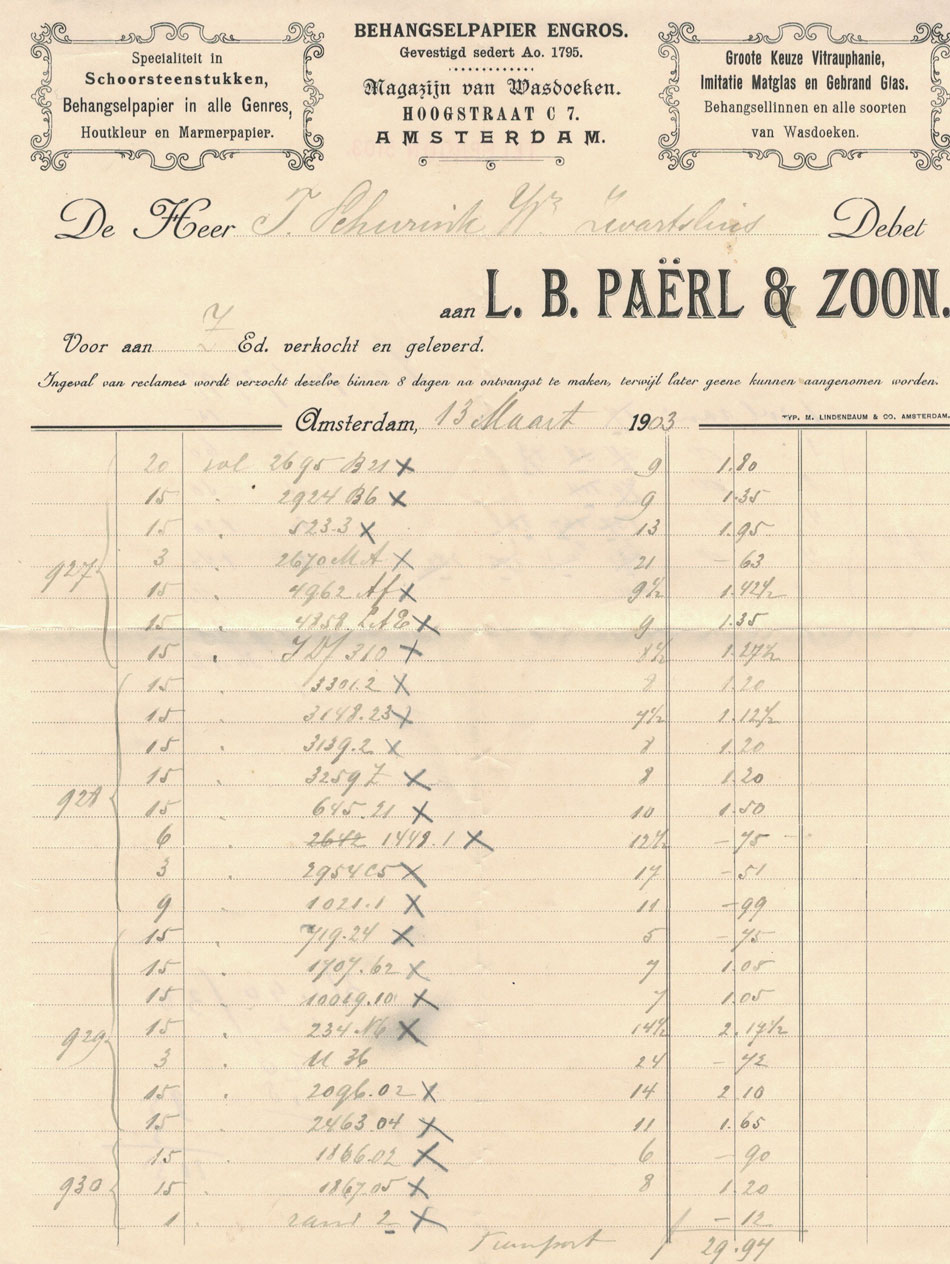 Specialiteit in
Schoorsteenstukken,
Behangselpapier in alle Genres,
Houtkleur en Marmerpapier.
BEHANGSELPAPIER ENGROS.
Gevestigd sedert Ao. 1795.
Magazijn van Wasdoeken.
HOOGSTRAAT C 7.
AMSTERDAM.
Groote Keuze Vitrauphanie,
Imitatie Matglas en Gebrand Glas.
Behangsellinnen en alle soorten
van Wasdoeken.
De Heer T. Schurink Zwartsluis Debet
aan L. B. PAËRL & ZOON.
Voor aan 7 Ed. verkocht en geleverd.
Ingeval van reclames wordt verzocht dezelve binnen 8 dagen na ontvangst te maken, terwijl later geene kunnen aangenomen worden.
TYP. M. LINDENBAUM & CO. AMSTERDAM.
Amsterdam, 13 Maart 1903
20 rol 2695 B21 X 9 1.80
15 " 2924 B6 X 9 1.35
15 " 523.3 X 13 1.95
3 " 2670 MA X 21 – 63
927 15 " 4962 Af X 9½ 1.42½
15 " 4858 LAE X 9 1.35
15 " 310 X 8½ 1.27½
15 3301.2 X 8 1.20
15 " 3148.23 X 7½ 1.12½
15 " 3139.2 X 8 1.20
15 " 3259 Z X 8 1.20
928 15 " 645.21 X 10 1.50
6 " 2642 1449.1 X 12½ – 75
3 " 2954 C5 X 17 – 51
9 " 1021.1 X 11 – 99
15 " 719.24 X 5 – 75
15 " 1707.62 X 7 1.05
15 " 10019.10 X 7 1.05
929 15 " 234 X 14½ 2.17½
3 " U 36 24 – 72
15 " 2096.02 X 14 2.10
15 " 2463.04 X 11 1.65
15 " 1866.02 X 6 – 90
930 15 " 1867.05 X 8 1.20
1 " rand 2 X – 12
Transport f 29.94